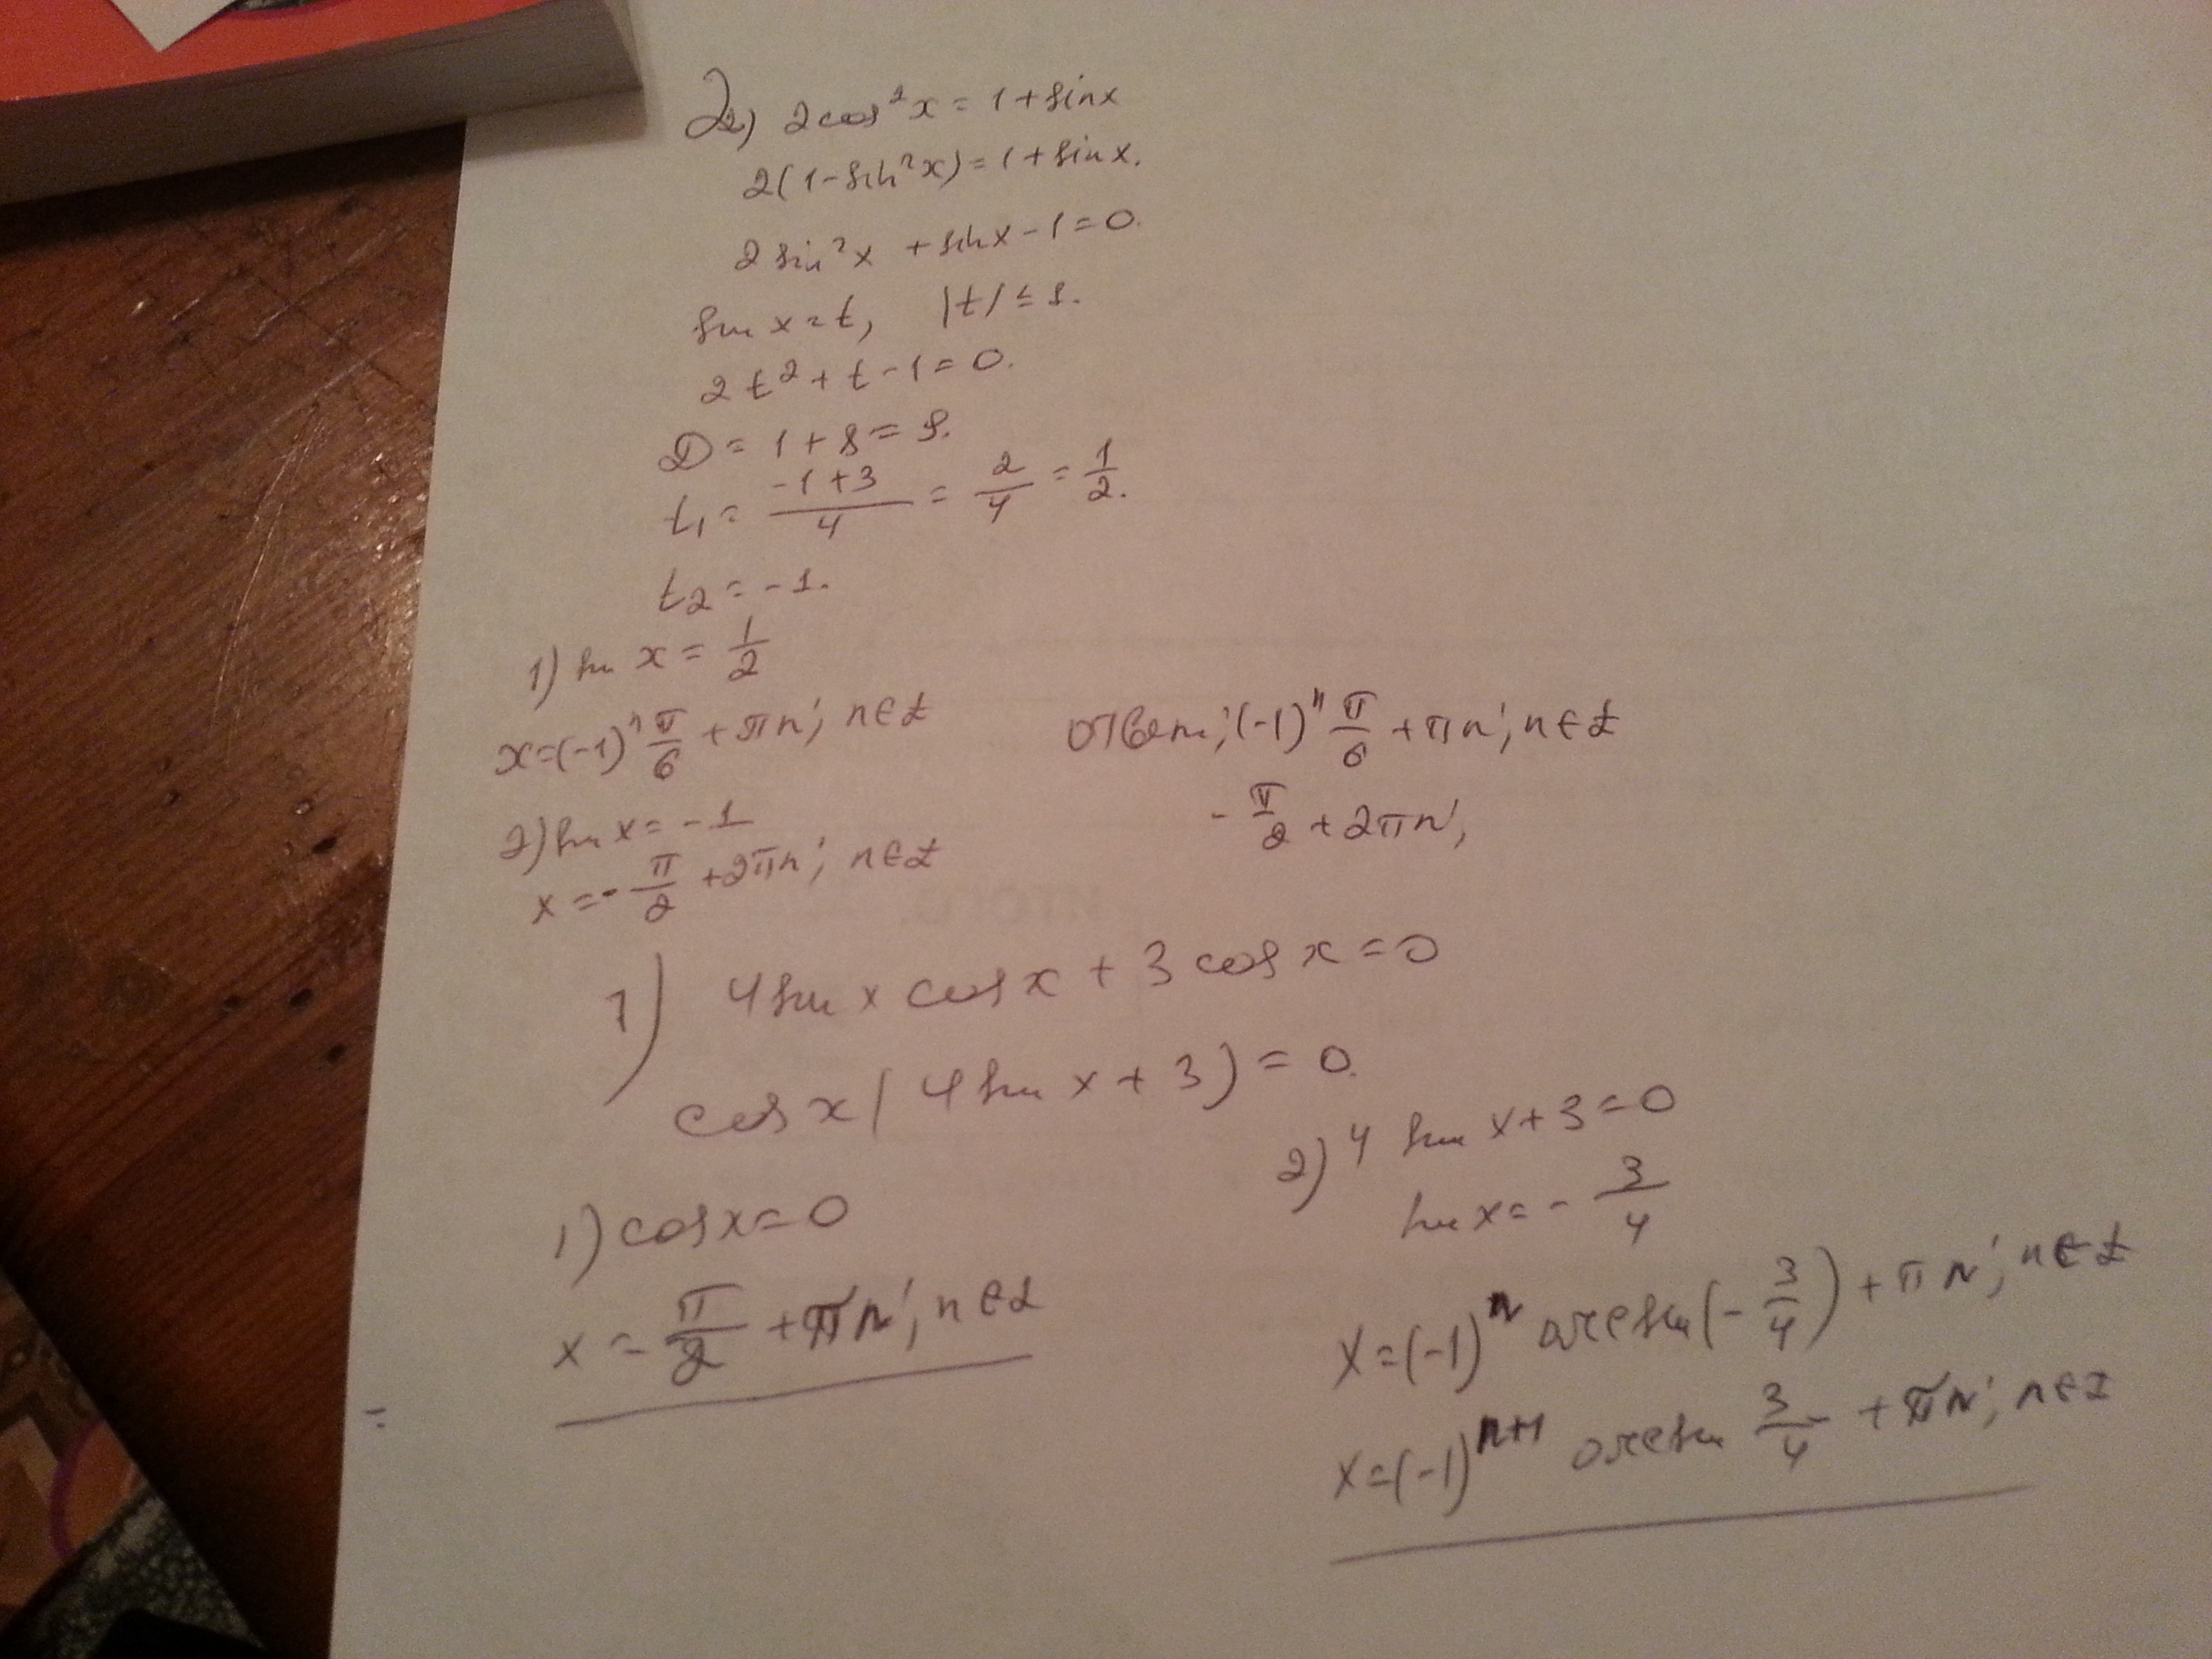 2) 2cos²x = 1 + sinx
2(1 - sin²x) = 1 + sinx.
2 sin²x + sinx - 1 = 0.
sin x = t, |t| ≤ 1.
2t² + t - 1 = 0.
D = 1 + 8 = 9.
t₁ = (-1+3)/4 = 2/4 = 1/2.
t₂ = -1.
1) sin x = 1/2
x = (-1)ⁿ π/6 + πn; n ∈ Z
2) sin x = -1
x = -π/2 + 2πn; n ∈ Z
ответ; (-1)ⁿ π/6 + πn; n ∈ Z
-π/2 + 2πn;
1) 4sin x cos x + 3 cos x = 0
cos x (4sin x + 3) = 0.
1) cosx = 0
x = π/2 + πn; n ∈ Z
2) 4 sin x + 3 = 0
sin x = -3/4
x = (-1)ⁿ arcsin(-3/4) + πn; n ∈ Z
x = (-1)ⁿ⁺¹ arcsin 3/4 + πn; n ∈ Z